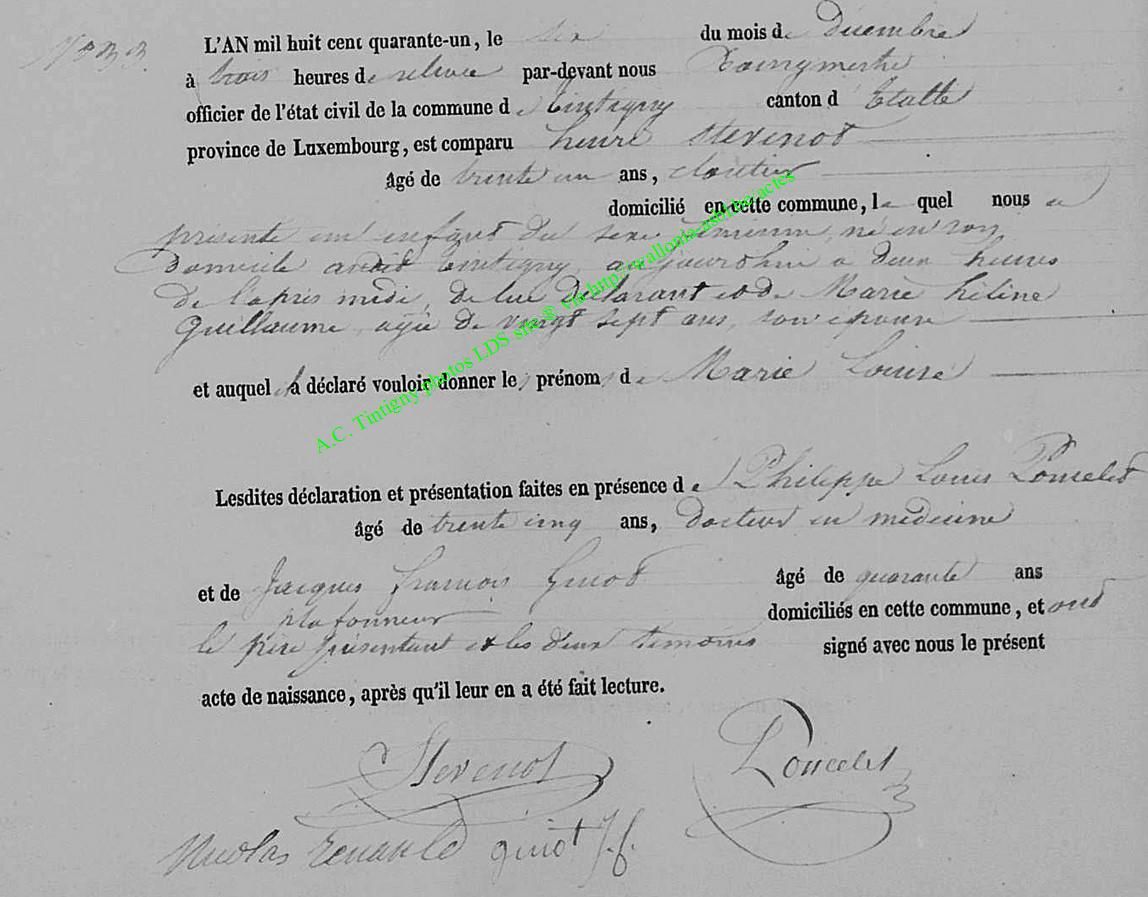 N° 33.
L'AN mil huit cent quarante-un, le six du mois de Décembre
à trois heures de relevée par-devant nous Bourgmestre
officier de l'état civil de la commune de Tintigny canton d'Etalle
province de Luxembourg, est comparu henri Stévenot
âgé de trente un ans, cloutier
domicilié en cette commune, le quel nous a
présenté un enfant du sexe féminin, né en son
domicile audit tintigny, aujourdhui a deux heures
de l'apres midi, de lui déclarant et de Marie héline
Guillaume, agée de vingt sept ans, son epouse
et auquel il a déclaré vouloir donner les prénoms de Marie Louise
Lesdites déclaration et présentation faites en présence de Philippe Louis Poncelet
âgé de trente cinq ans, docteur en médecine
et de Jacques françois Guiot âgé de quarante ans
plafonneur domiciliés en cette commune, et ont
le père présentant et les deux temoins signé avec nous le présent
acte de naissance, après qu'il leur en a été fait lecture.
Stevenot Poncelet
Nicolas renauld guiot J.f.
A.C. Tintigny photos LDS site ® via http://wallonia-asbl.be/actes